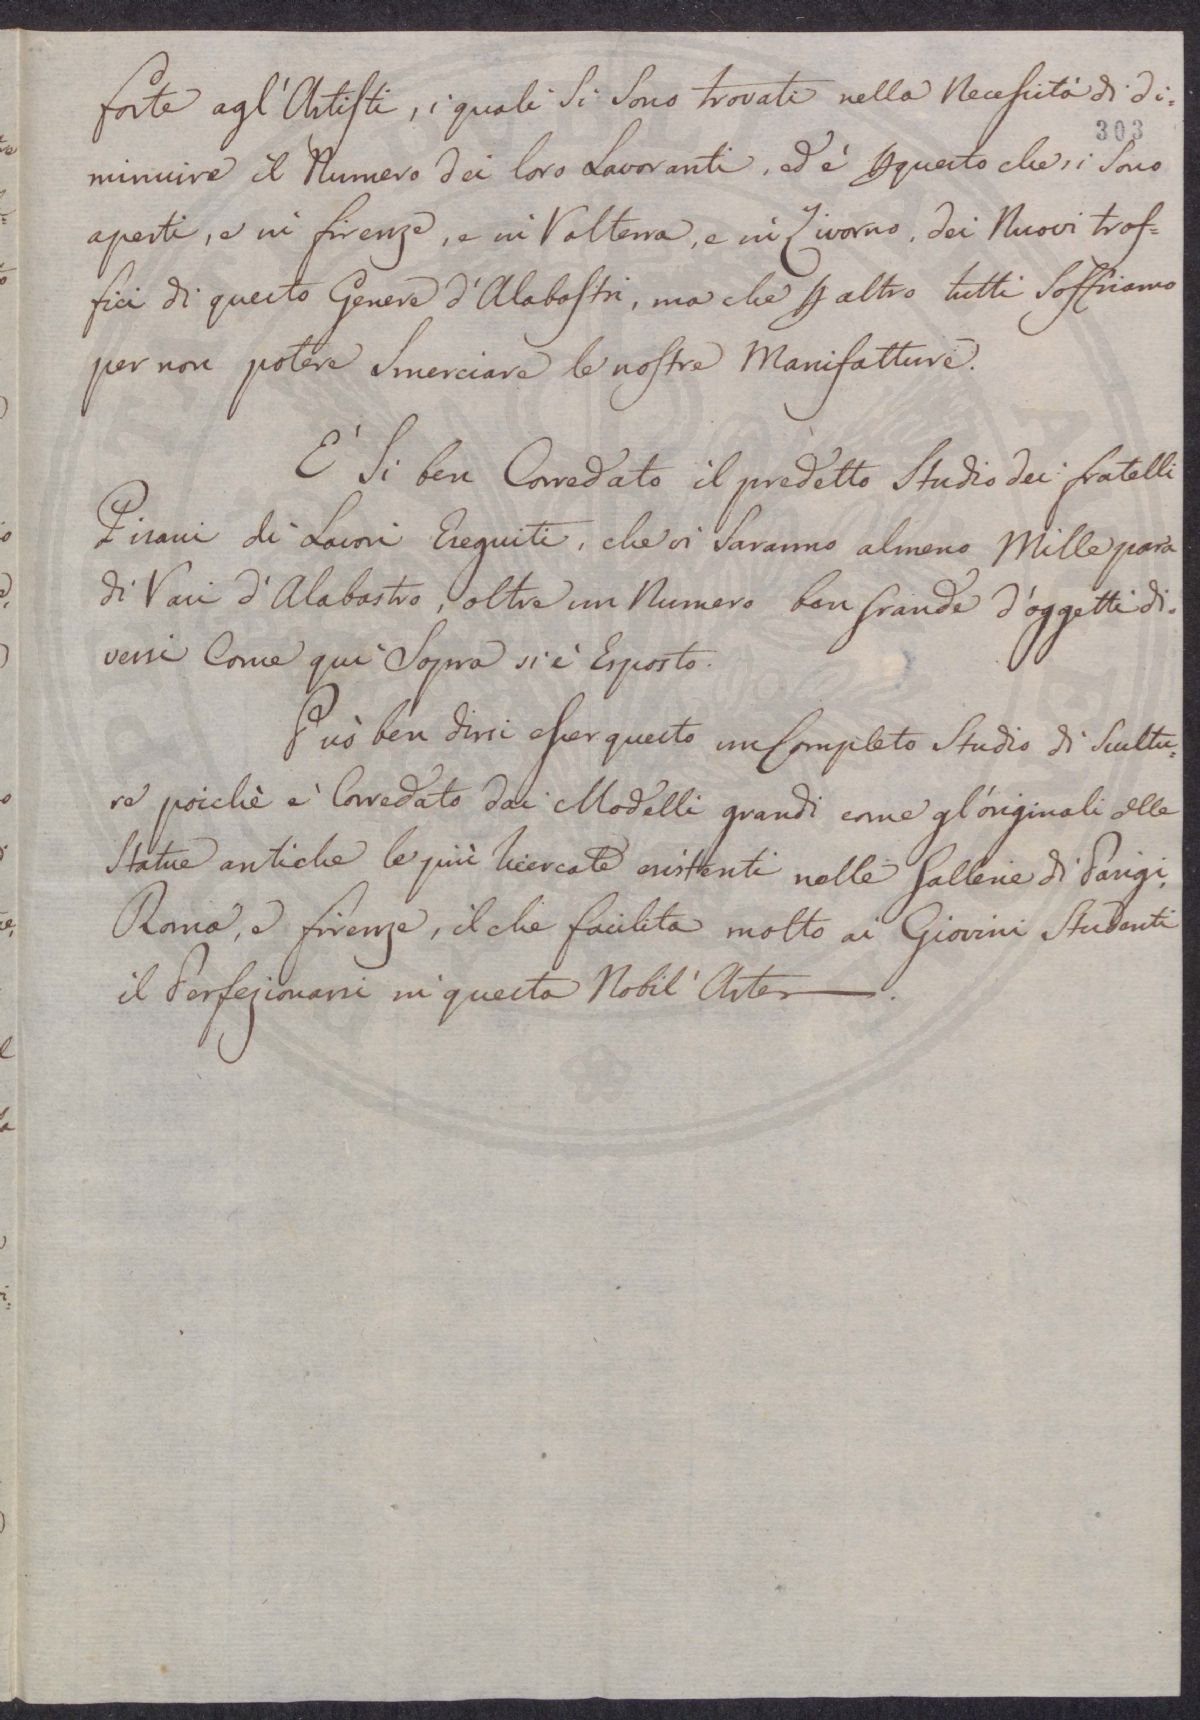 forte agl'Artisti, i quali Si Sono trovati nella Necessità di di=
303
minuire il Numero dei loro Lavoranti, ed è p questo che si Sono
aperti, e in firenze, e in Volterra, e in Livorno, dei Nuovi traf=
fici di questo Genere d'Alabastri, ma che p altro tutti Soffriamo
per non potere Smerciare le nostre Manifatture.
E' Si ben Corredato il predetto Studio dei fratelli
Pisani di Lavori Eseguiti, che vi Saranno almeno Mille para
di Vasi d'Alabastro, oltre un Numero ben Grande d'oggetti di=
versi Come qui Sopra si è Esposto.
Può ben dirsi esser questo un Completo Studio di Scultu=
re poichè è Corredato dai Modelli grandi come gl'originali delle
Statue antiche le più ricercate esistenti nelle Gallerie di Parigi,
Roma, e firenze, il che facilita molto ai Giovini Studenti
il Perfezionarsi in questa Nobil'Arte.